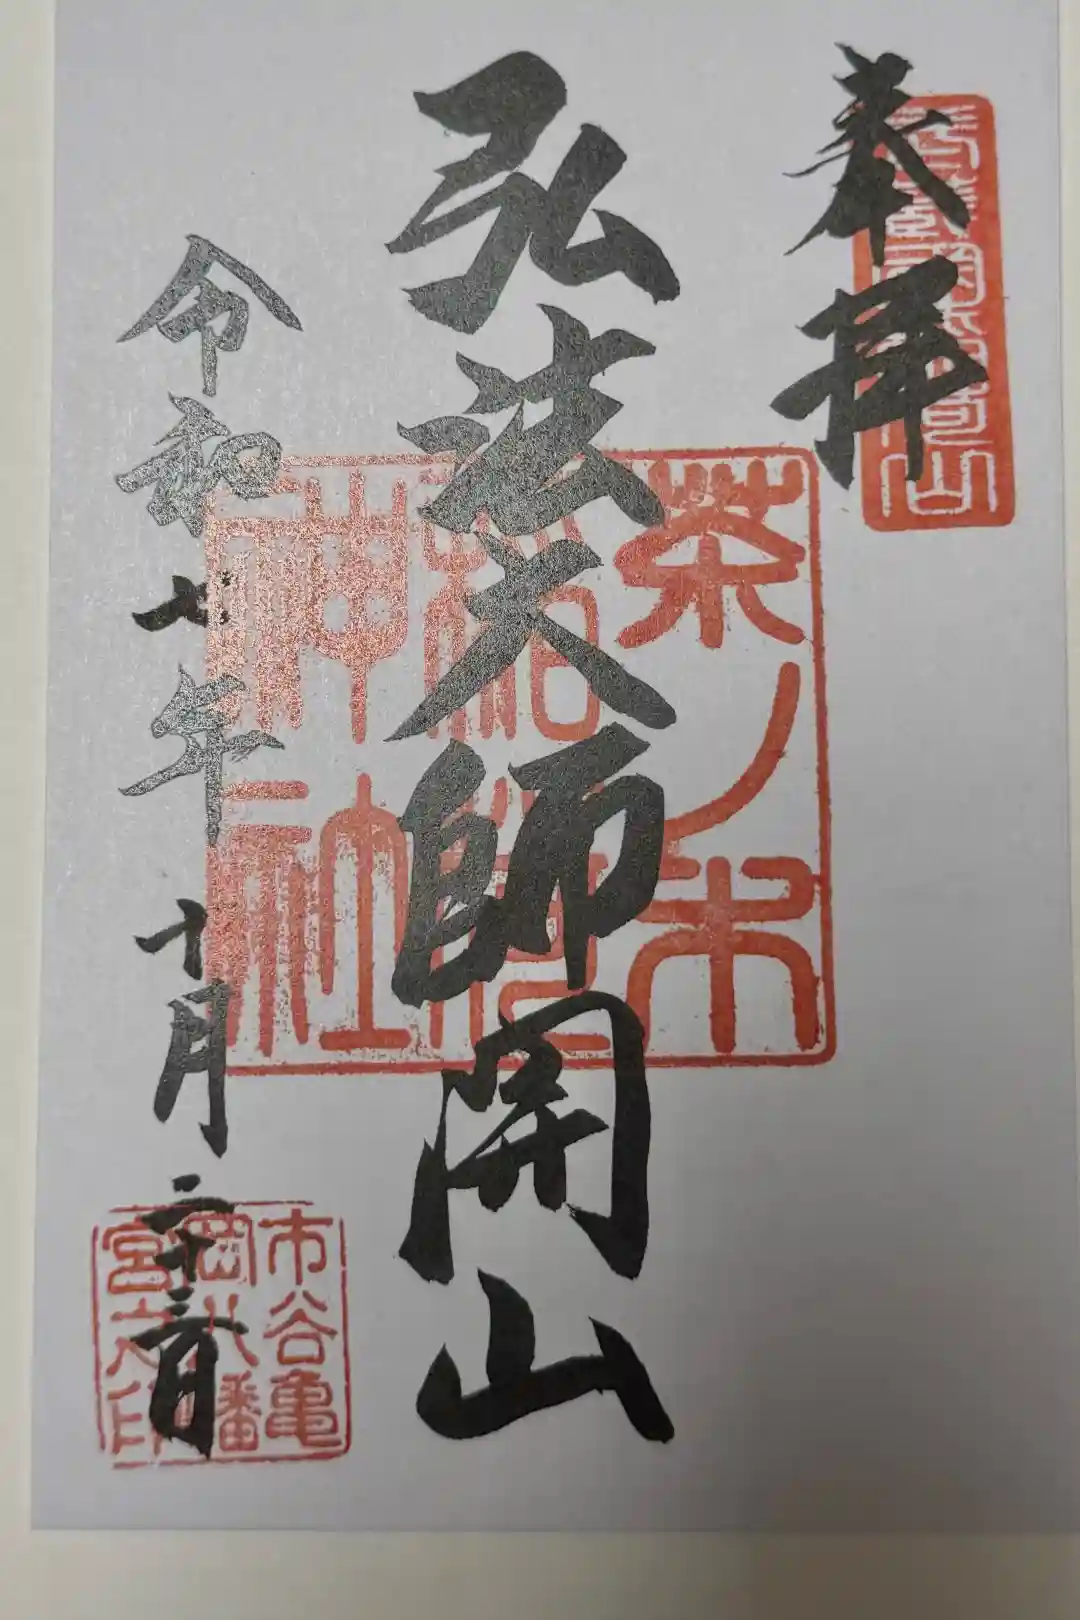 奉拝
弘法大師開山
茶ノ木
稲荷
神社
令和七年十月二十二日
市谷亀
岡八幡
宮之印